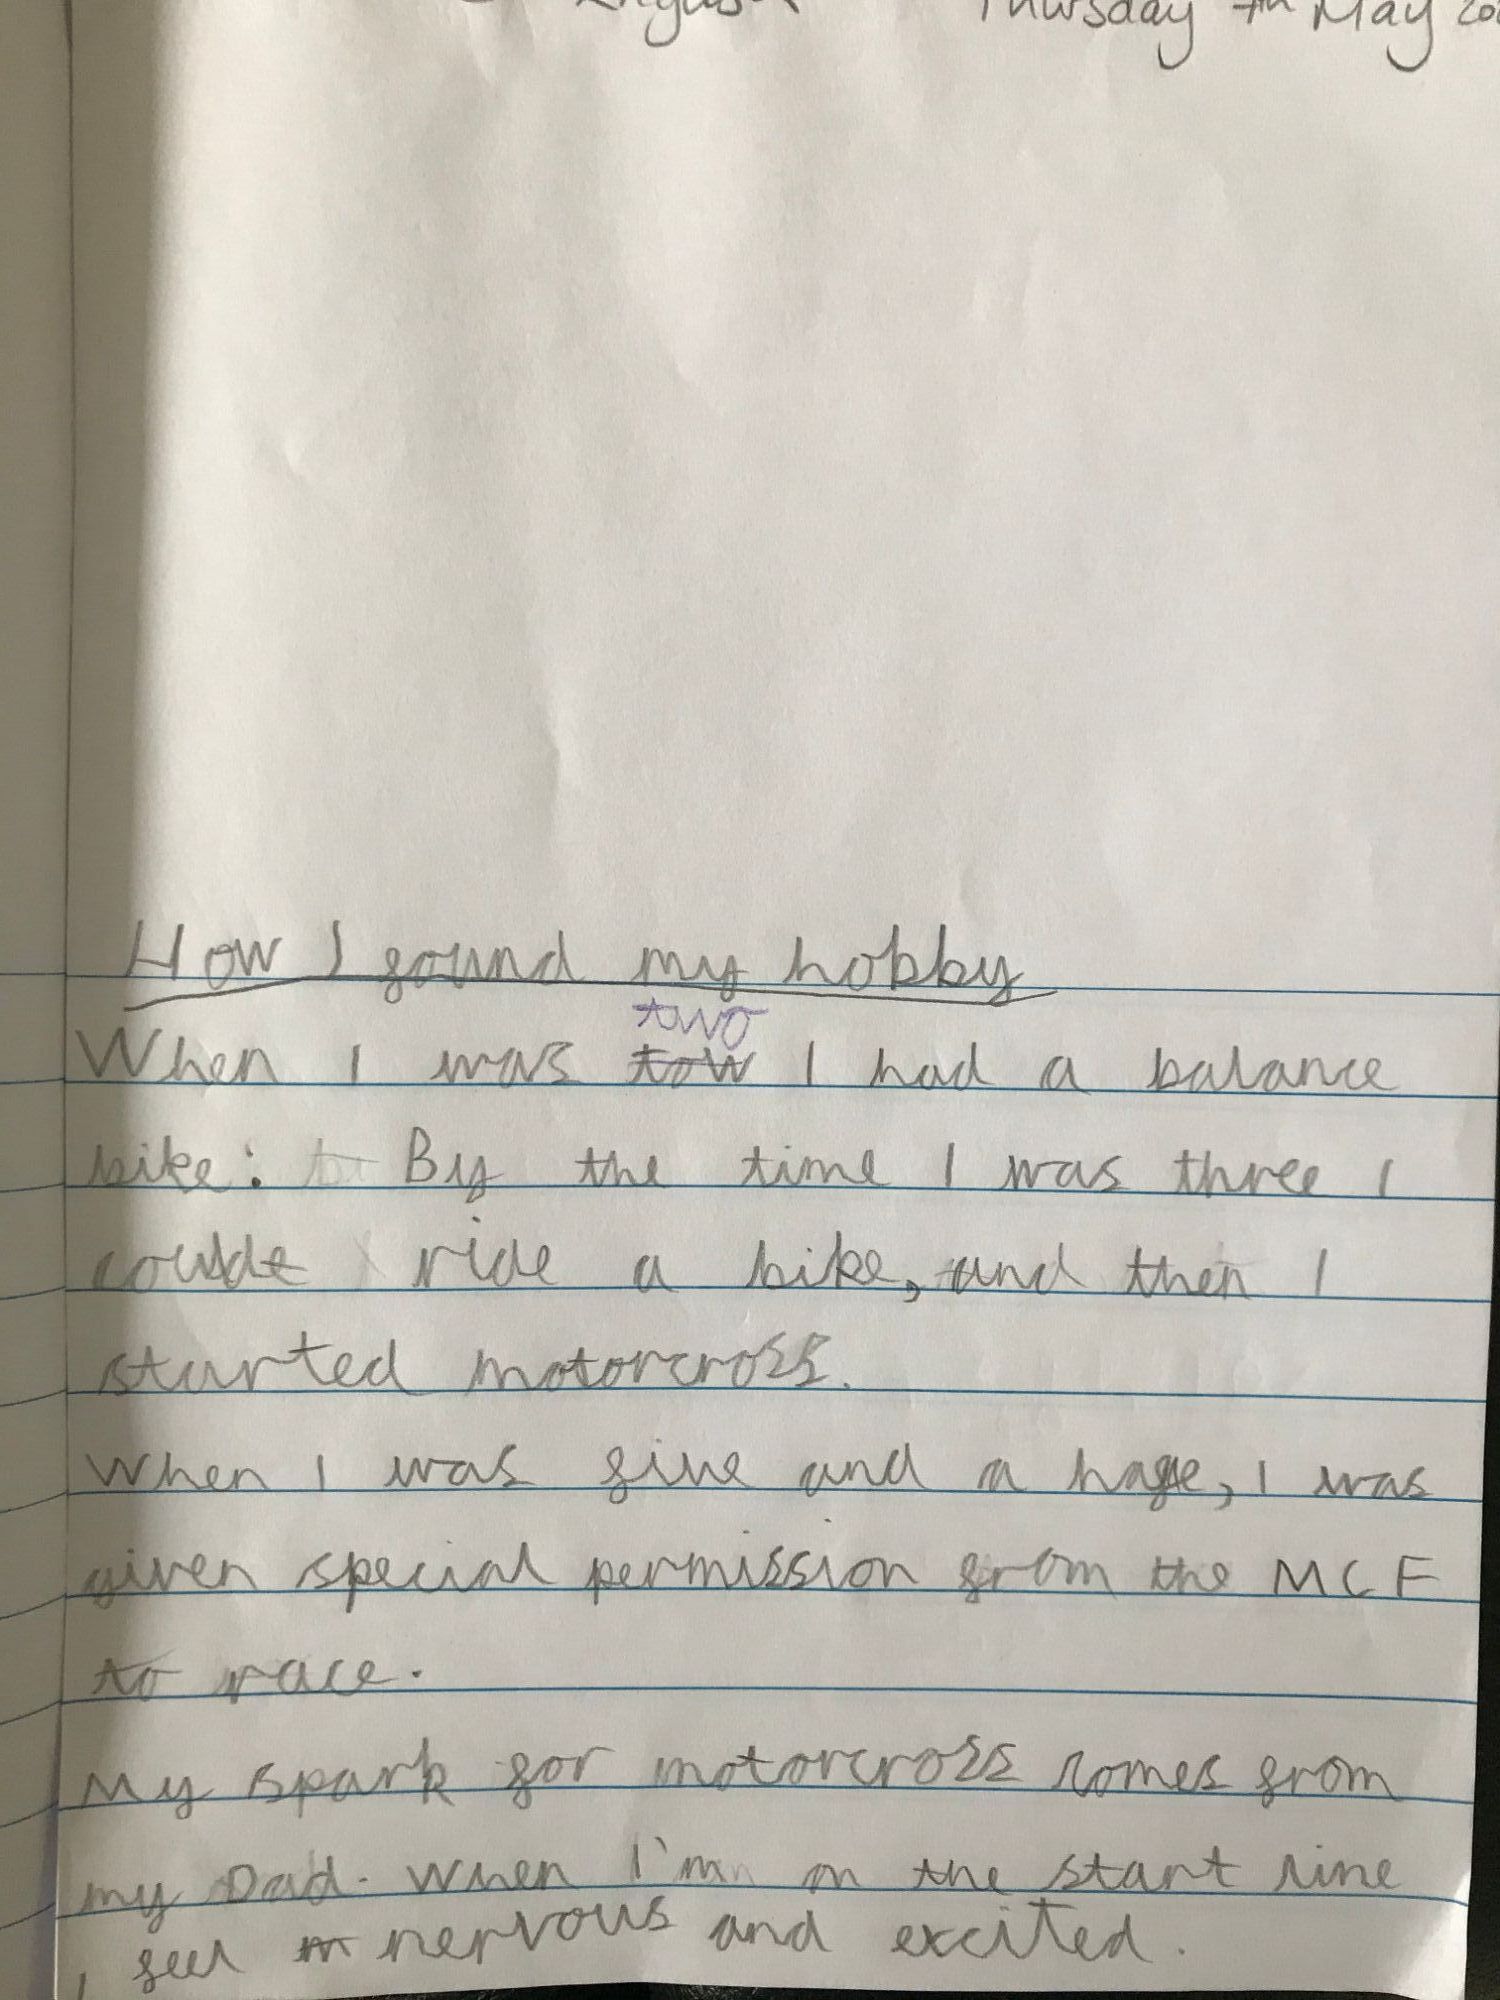 English Thursday 7th May
How I found my hobby
two
When I was tow I had a balance
bike. By the time I was three I
could ride a bike, and then I
started motorcross.
When I was five and a hafe, I was
given special permission from the MCF
to race.
My spark for motorcross comes from
my Dad. When I'm on the start line
I feel nervous and excited.